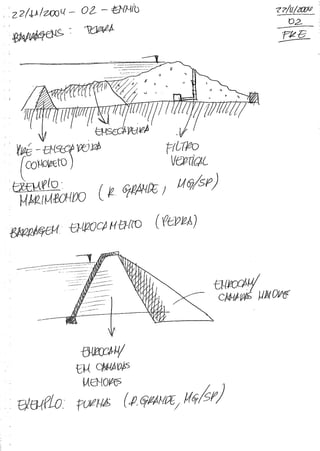 22/11/2004 - 02 - ENNIO
22/11/2004
02
FRE
BARRAGENS: TERRA
ENSECADEIRA
PRÉ-ENSECADEIRA
(CONCRETO)
FILTRO
VERTICAL
EXEMPLO:
MARIMBONDO (R. GRANDE, MG/SP)
BARRAGEM ENROCAMENTO (PEDRA)
ENROCAM/
CAMADAS MAIORES
ENROCAM/
EM CAMADAS
MENORES
EXEMPLO: FURNAS (R. GRANDE, MG/SP)